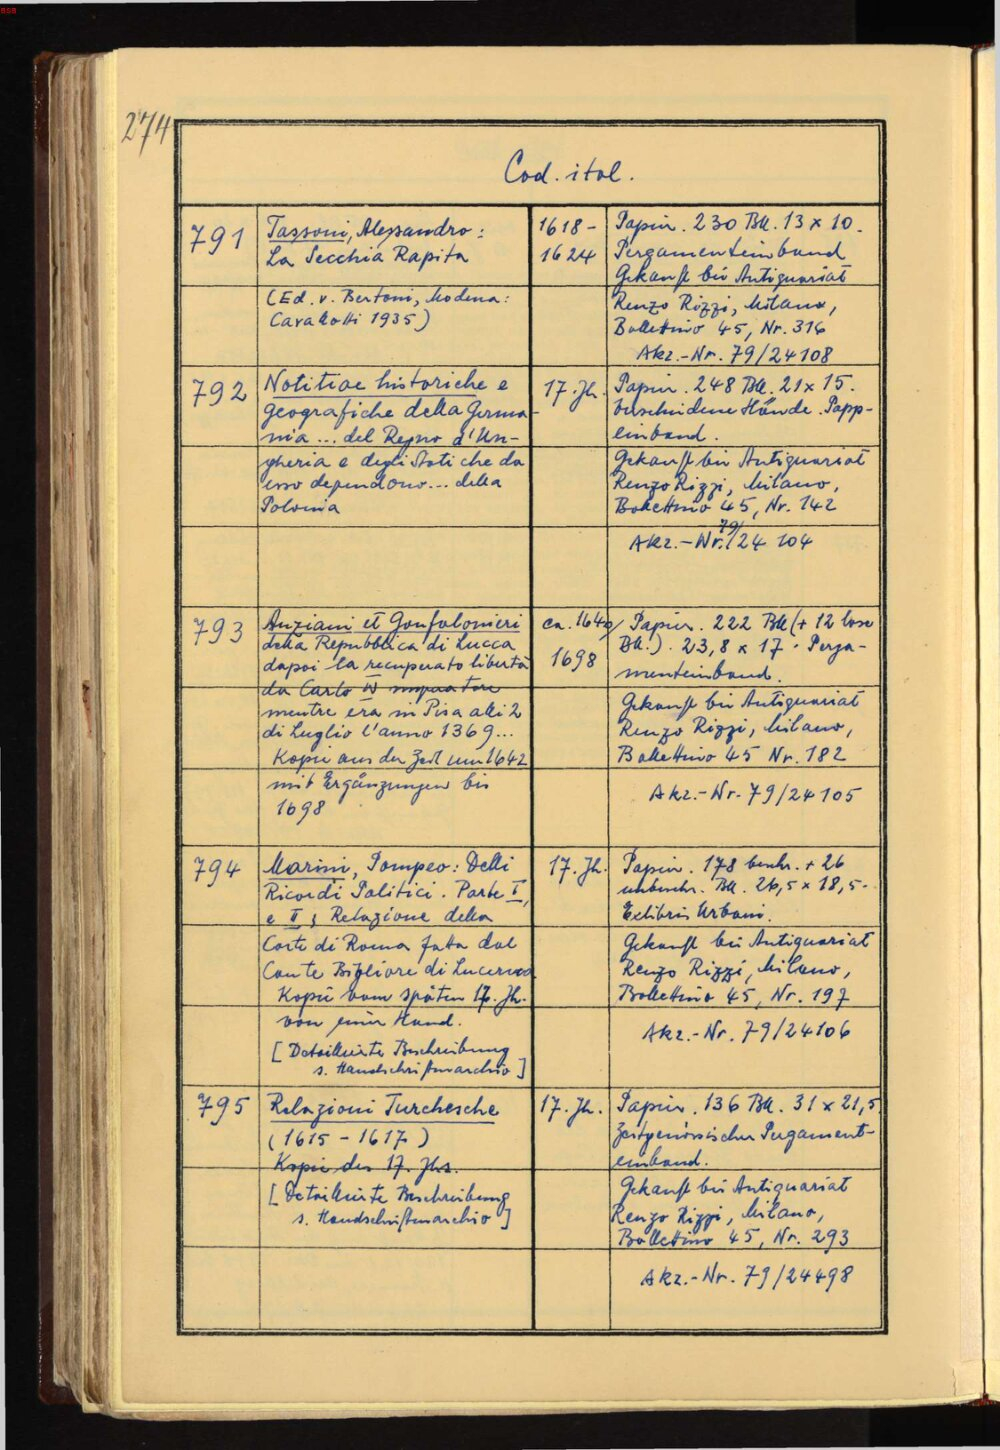 274
Cod. ital.
791
Tassoni, Alessandro:
La Secchia Rapita
(Ed. v. Bertoni, Modena:
Cavallotti 1935)
1618-
1624
Papier. 230 Bll. 13 x 10.
Pergamenteinband
Gekauft bei Antiquariat
Renzo Rizzi, Milano,
Bollettino 45, Nr. 316
Akz.-Nr. 79/24108
792
Notitiae historiche e
geografiche della Germa-
nia ... del Regno d'Un-
gheria e degli Stati che da
esso dependono... della
Polonia
17. Jh.
Papier. 248 Bll. 21 x 15.
Verschiedene Hände. Papp-
einband.
Gekauft bei Antiquariat
Renzo Rizzi, Milano,
Bollettino 45, Nr. 142
Akz.-Nr. 79/24 104
793
Anziani et Gonfalonieri
della Repubblica di Lucca
dapoi la recuperato libertà
da Carlo IV imperatore
mentre era in Pisa alli 2
di Luglio l'anno 1369...
Kopie aus der Zeit um 1642
mit Ergänzungen bis
1698
ca. 1640/
1698
Papier. 222 Bll (+ 12 lose
Bll.). 23,8 x 17. Perga-
menteinband.
Gekauft bei Antiquariat
Renzo Rizzi, Milano,
Bollettino 45 Nr. 182
Akz.-Nr. 79/24105
794
Marini, Pompeo: Delli
Ricordi Politici. Parte I,
e II; Relazione della
Corte di Roma fatta dal
Conte Bigliore di Lucerna
Kopie vom späten 17. Jh.
von einer Hand.
[Detaillierte Beschreibung
s. Handschriftenarchiv]
17. Jh.
Papier. 178 beschr. + 26
unbeschr. Bll. 26,5 x 18,5.
Exlibris Urbani.
Gekauft bei Antiquariat
Renzo Rizzi, Milano,
Bollettino 45, Nr. 197
Akz.-Nr. 79/24106
795
Relazioni Turchesche
(1615 - 1617)
Kopie des 17. Jhs.
[Detaillierte Beschreibung
s. Handschriftenarchiv]
17. Jh.
Papier. 136 Bll. 31 x 21,5
Zeitgenössischer Pergament-
einband.
Gekauft bei Antiquariat
Renzo Rizzi, Milano,
Bollettino 45, Nr. 293
Akz.-Nr. 79/24498